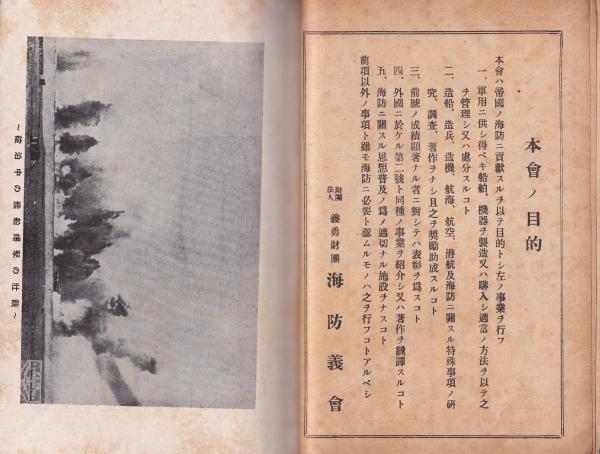 本會ノ目的
本會ハ帝國ノ海防ニ貢獻スルヲ以テ目的トシ左ノ事業ヲ行フ
一、軍用ニ供シ得ベキ船舶、機器ヲ製造又ハ購入シ適當ノ方法ヲ以テ之
ヲ管理シ又ハ處分スルコト
二、造船、造兵、造機、航海、航空、潛航及海防ニ關スル特殊事項ノ研
究、調査、著作ヲナシ且之ヲ奬勵助成スルコト
三、前號ノ成績顯著ナル者ニ對シテハ表彰ヲ爲スコト
四、外國ニ於ケル第二號ト同種ノ事業ヲ紹介シ又ハ著作ヲ飜譯スルコト
五、海防ニ關スル思想普及ノ爲メ適切ナル施設ヲナスコト
前項以外ノ事項ト雖モ海防ニ必要ト認ムルモノハ之ヲ行フコトアルベシ
財團法人 義勇財團 海防義會
〜中の艦船爆撃の壯觀〜